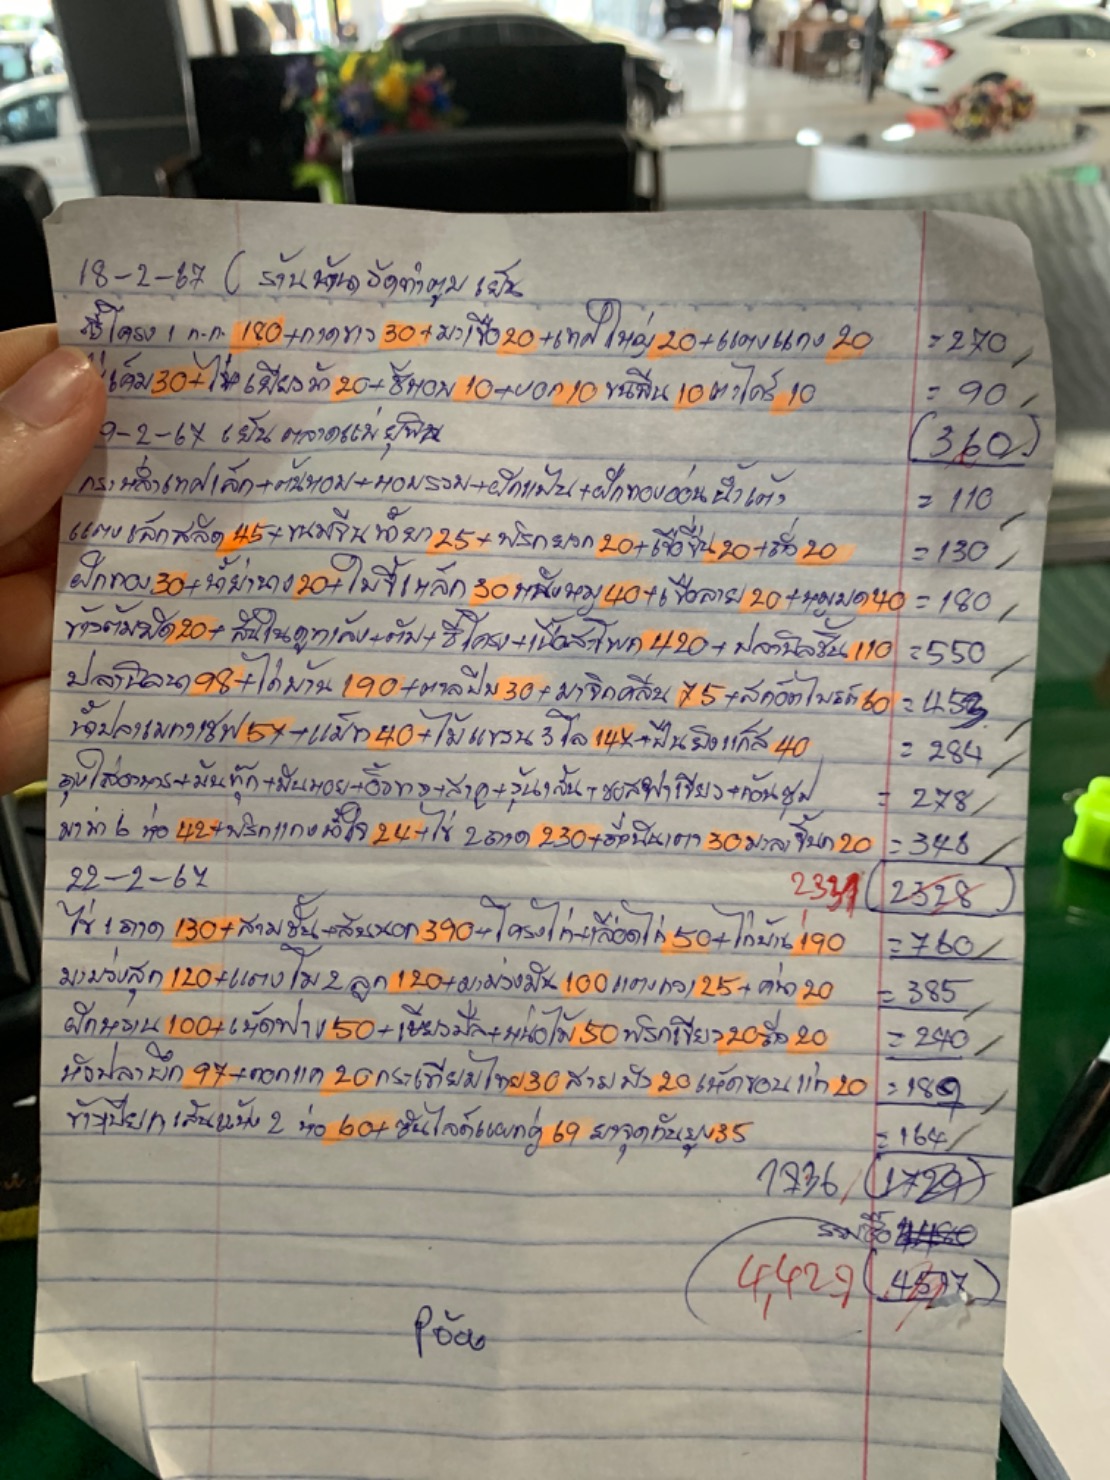 18-2-67 ( ร้านน้านัดวัดทำตูม เย็น
ซี่โครง 1 ก.ก. 180+กาดขาว 30+มาเขือ 20+เทศใหญ่ 20+แตงแกง 20 =270
เค็ม 30+ไข่เยี่ยวม้า 20+ชีหอม 10+บอก 10 ขมิ้น 10 ตาไคร้ 10 = 90
9-2-67 เย็น ตลาดแม่ยุพิน (360)
กระหล่ำเทศเล็ก+ต้นหอม+หอมรวม+ผักแป้น+ฝักทองอ่อนน้ำเต้า = 110
แตงเล็กสลัด 45+ขนมจีนน้ำยา 25+พริกยวก 20+เขือขื่น 20+ถั่ว 20 = 130
ฝักทอง 30+น้ำย่านาง 20+ใบขี้เหล็ก 30 หนังหมู 40+เขือลาย 20+หมูบด 40 = 180
ข้าวต้มมัด 20+สันในดูกเล้ง+ตับ+ซี่โครง+เนื้อสะโพก 420+ปลานิลชิ้น 110 =550
ปลานิลนา 98+ไก่บ้าน 190+ตาลปีบ 30+มาจิกคลีน 75+สกอตไบรต์ 60 = 453
น้ำปลาเมกาเชฟ 57+แม็ก 40+ไม้แขวน 3 โล 147+ปืนยิงแก๊ส 40 = 284
ถุงใส่อาหาร+มันทุ๊ก+มันหอย+ซิอิ้วขาว+สาคู+วุ้นเส้น+ซอสฝาเขียว+ก้อนซุป = 278
มาม่า 6 ห่อ 42+พริกแกงน้ำใจ 24+ไข่ 2 ถาด 230+ถั่ว 30 มาลาขี้นก 20 = 348
22-2-67 2331 (2328)
ไข่ 1 ถาด 130+สามชั้น+สันนอก 390+โครงไก่+เลือดไก่ 50+ไก่บ้าน 190 =760
มาม่วงสุก 120+แตงโม 2 ลูก 120+มาม่วงมัน 100 แตงกวา 25+คะน้า 20 = 385
ผักหวาน 100+เห็ดฟาง 50+เขียวมัส+หน่อไม้ 50 พริกเขียว 20 ถั่ว 20 = 240
หัวปลาบึก 97+ดอกแค 20 กระเทียมไทย 30 สามสิบ 20 เห็ดขอนแก่ 20 = 187
ข้าวเปียกเส้นแห้ง 2 ห่อ 60+ซันไลต์แพกคู่ 69 ยาจุดกันยุง 35 = 164
1736 (1729)
รวมซื้อ 4480
4,427 (4517)
P อ้อน